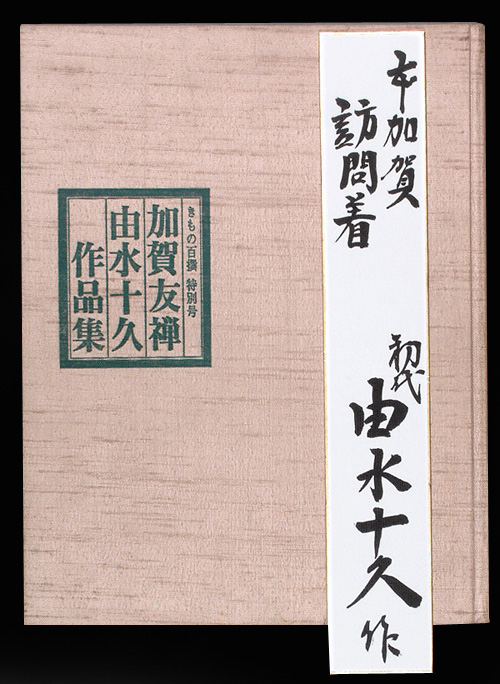 本加賀
訪問着
初代 由水十久 作
きもの百撰 特別号
加賀友禅
由水十久
作品集